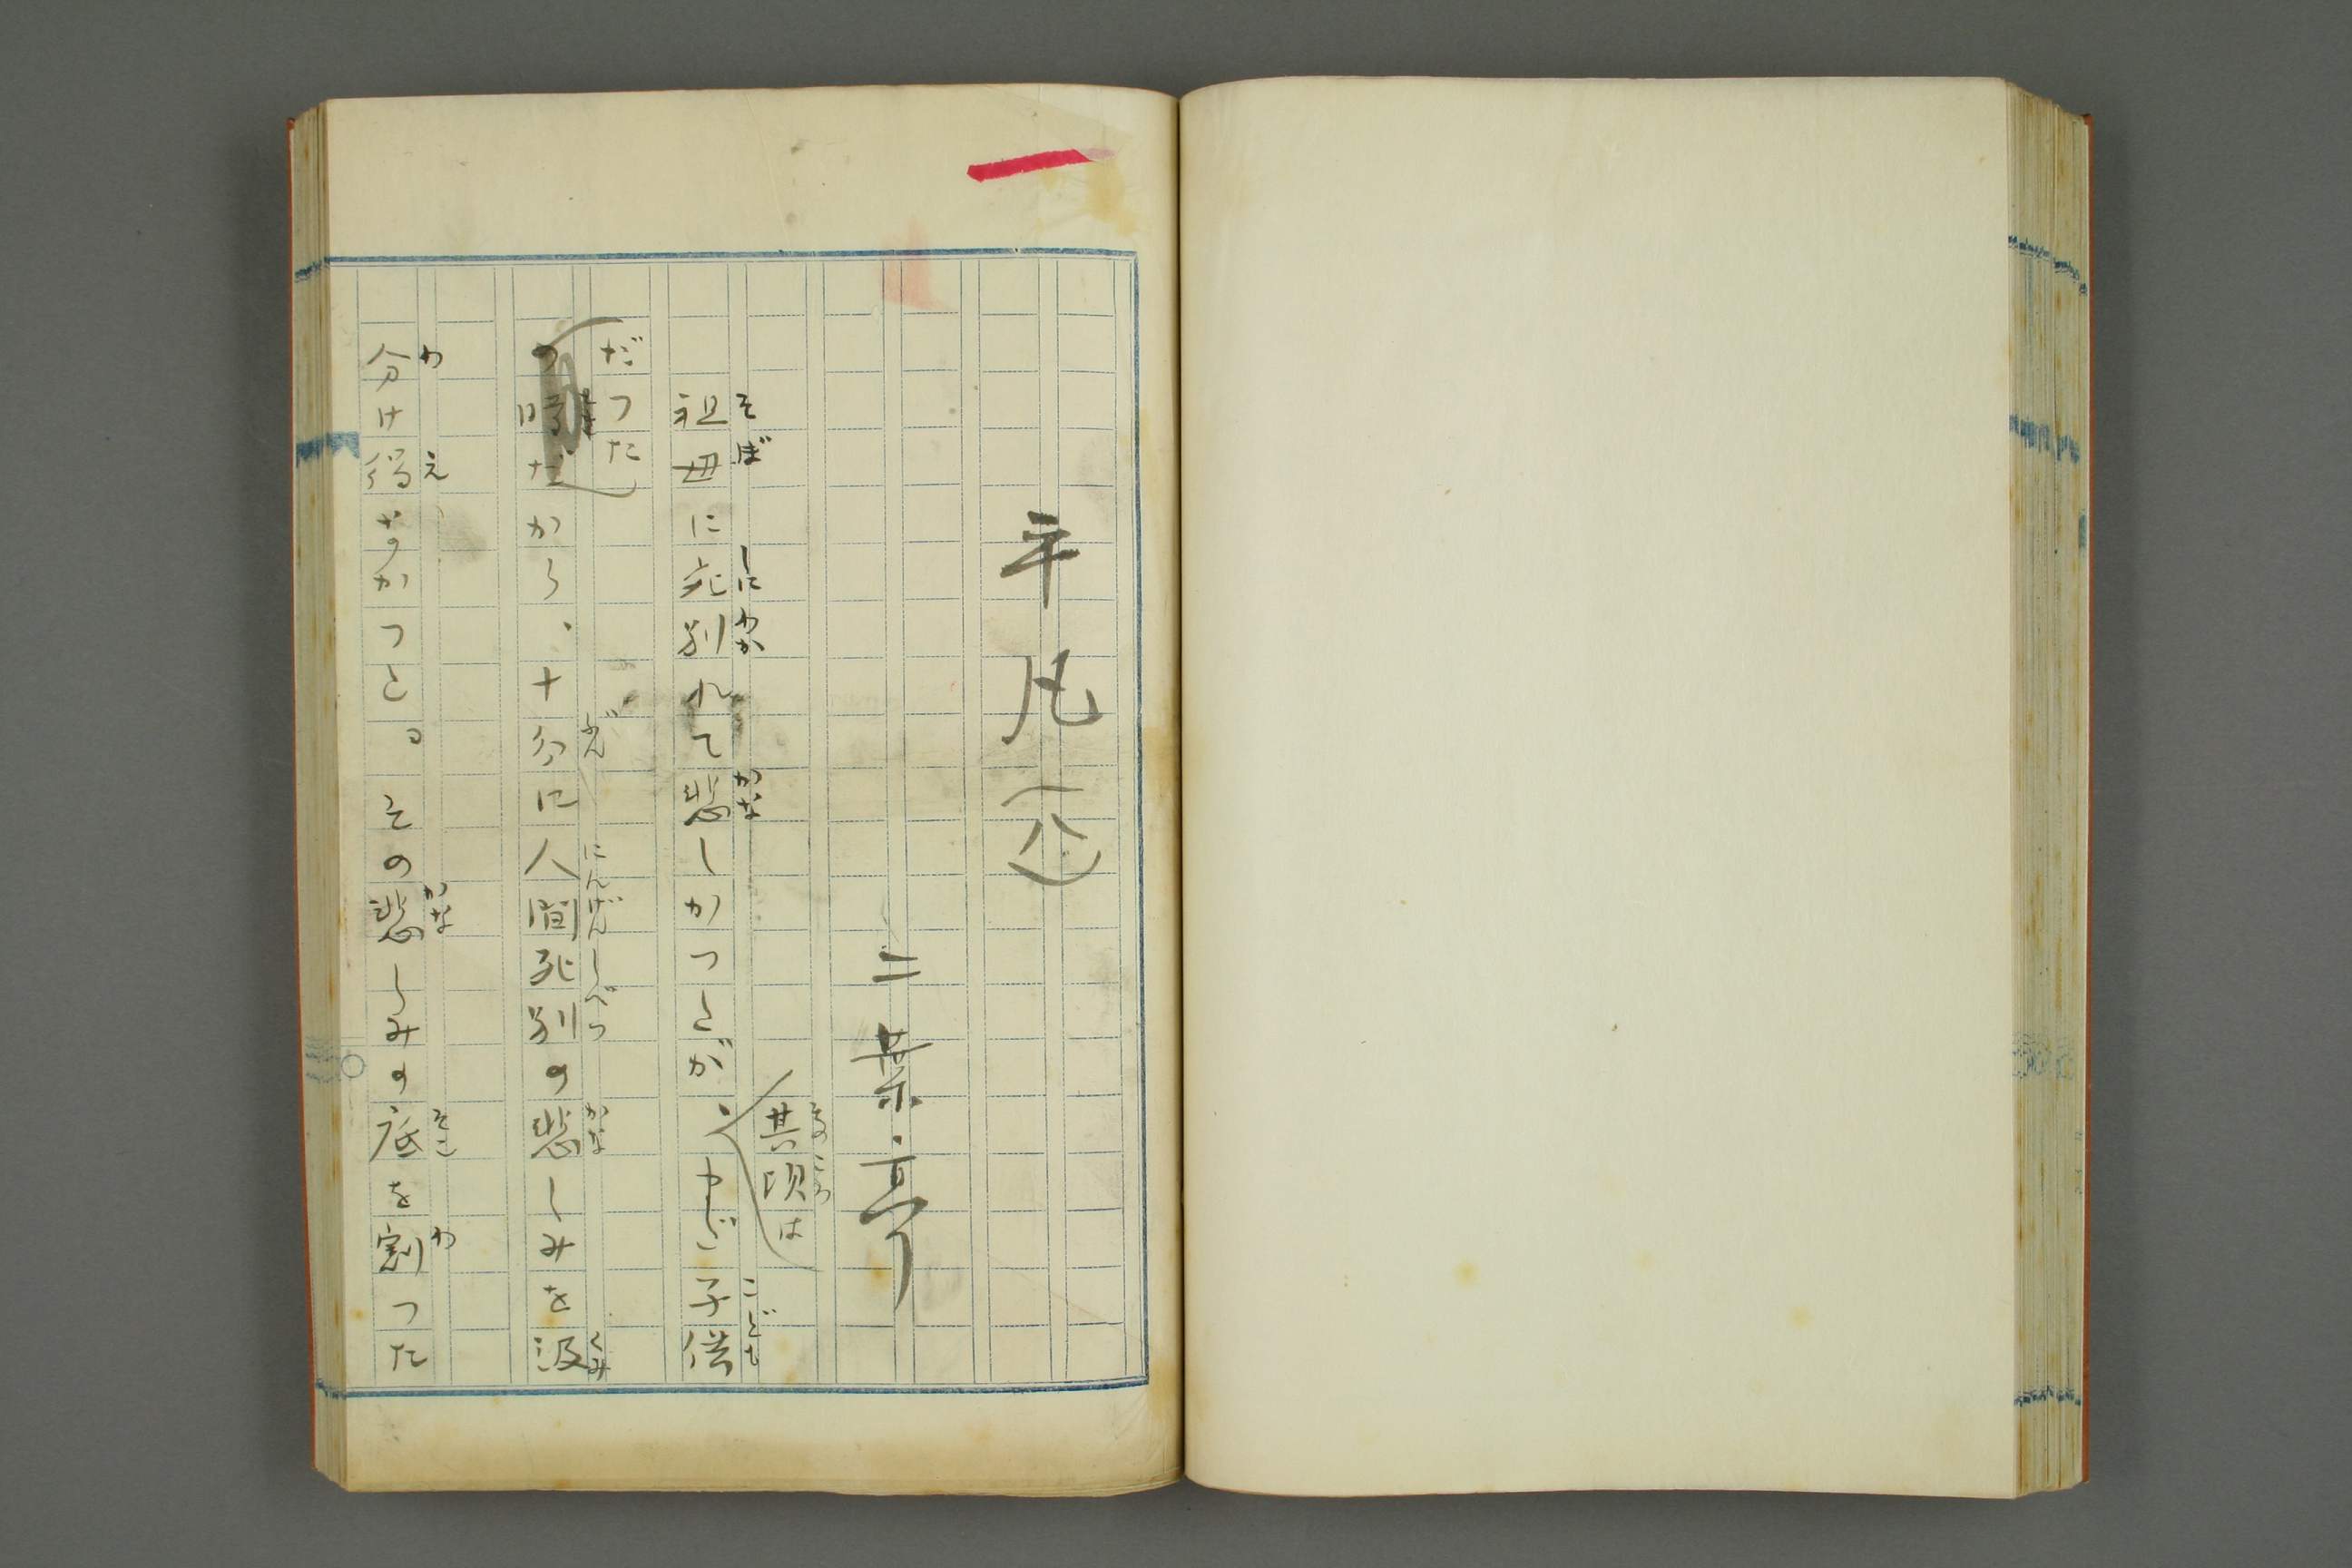 平凡(八)
二葉亭
祖母に死別れて悲しかつたが、其頃はまだ子供
だつた
の時だから、十分に人間死別の悲しみを汲
分け得なかつた。その悲しみの底を割つた